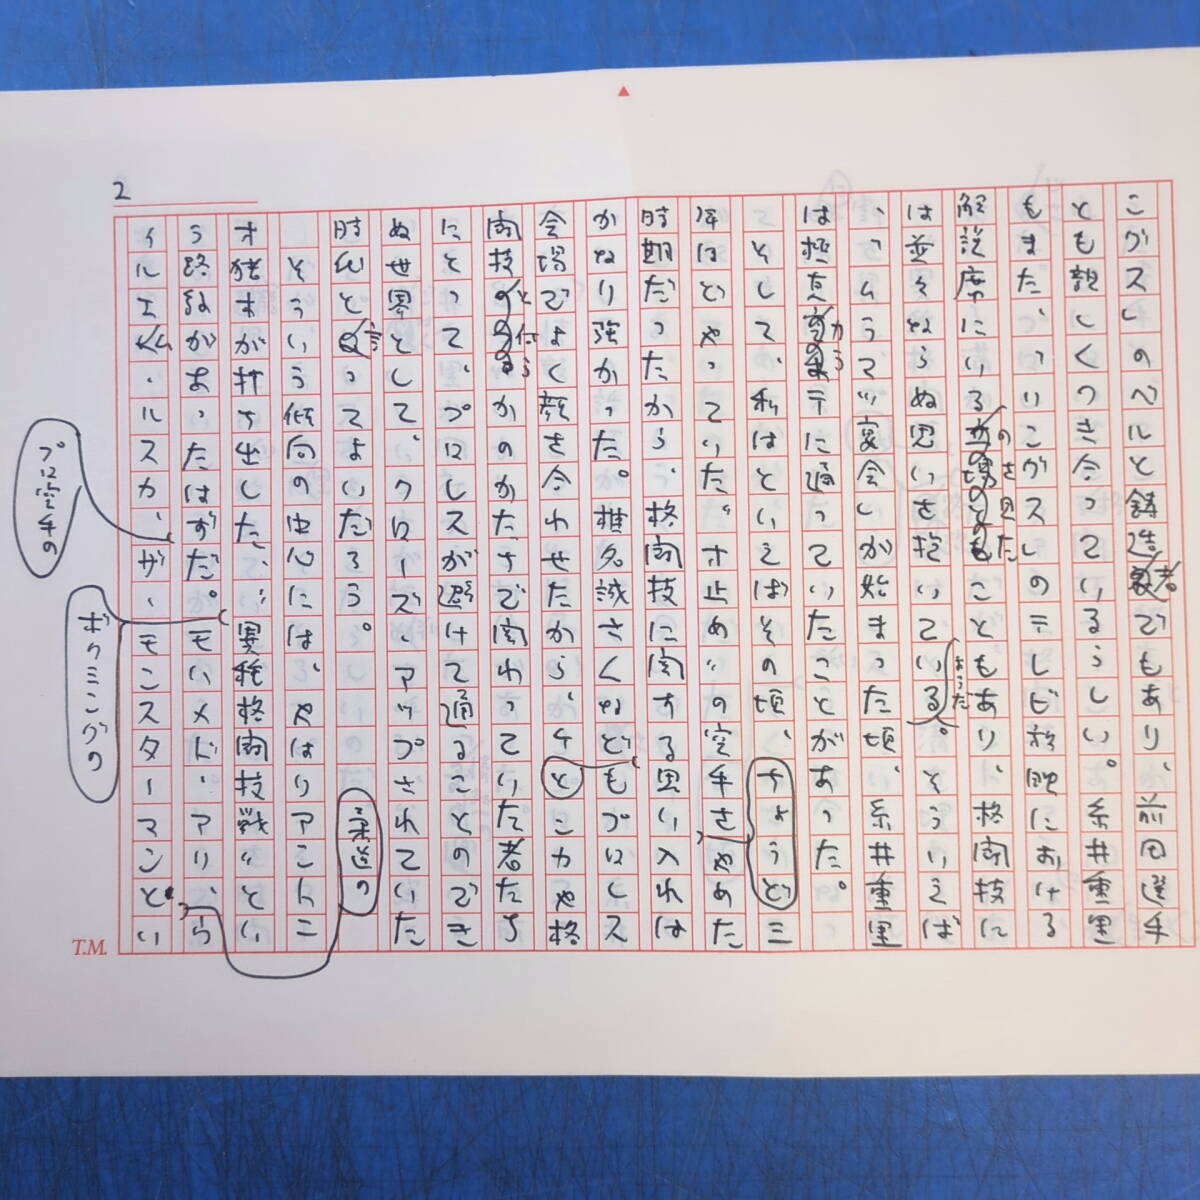 2
プロレスのベルト鋳造者でもあり、前田選手
とも親しくつき合っているらしい。糸井重里
もまた、プロレスのテレビ放映における
解説席にいるのを見たこともあり、格闘技に
は並々ならぬ思いを抱いているようだ。そういえば
、“ムラマツ宴会”が始まった頃、糸井重里
は極真カラテに通っていたことがあった。
そして、私はといえばその頃、ちょうど三
年ほどやっていた“寸止め”の空手をやめた
時期だったから、格闘技に関する思い入れは
かなり強かった。椎名誠さんなどもプロレス
会場でよく顔を合わせたから、ケンカや格
闘技と何らかのかたちで関わっていた者たち
にとって、プロレスが避けて通ることのでき
ぬ世界として、クローズ・アップされていた
時代と言ってよいだろう。
そういう傾向の中心には、やはりアントニ
柔道の
オ猪木が打ち出した、“異種格闘技戦”とい
う路線があったはずだ。モハメド・アリ、ウ
ィルエム・ルスカ、ザ・モンスターマンとい
ボクシングの
プロ空手の
T.M.